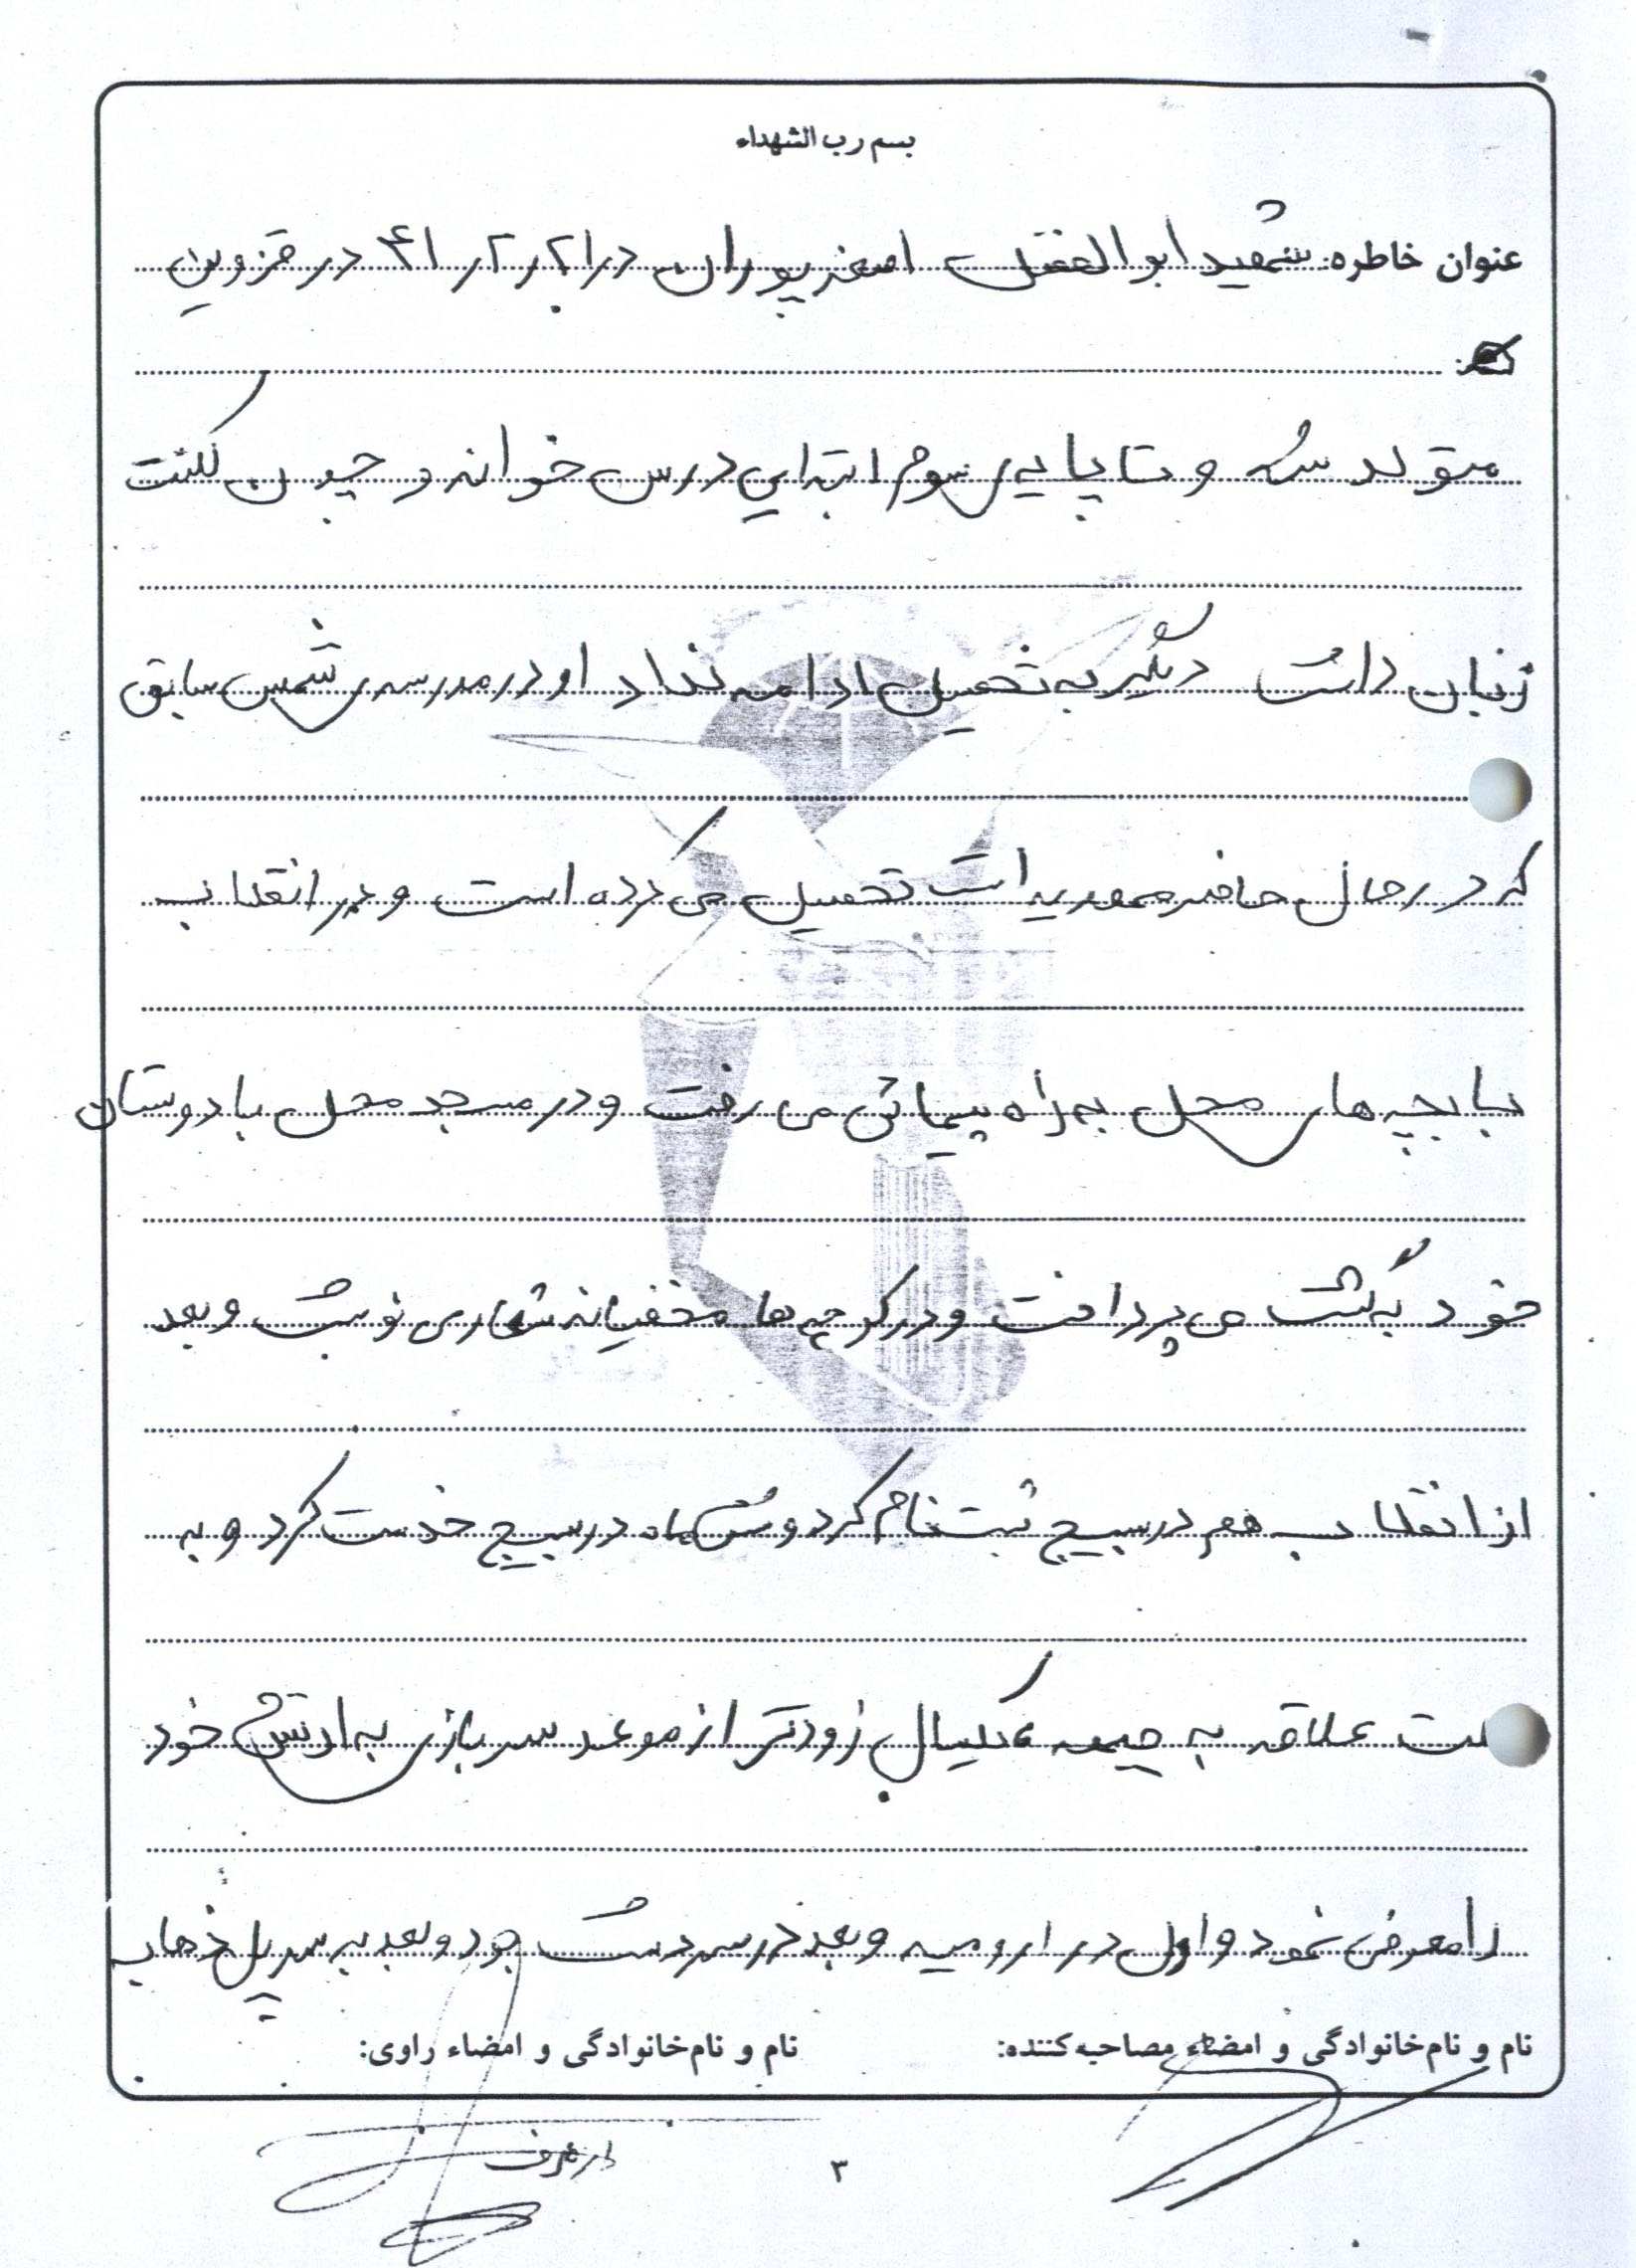 بسم رب الشهداء
عنوان خاطره: شهید ابوالفضل اصغرپوران در ۲۱ر۲ر۴۱ در قزوین
متولد شد و تا پایه‌ی سوم ابتدایی درس خواند و چون لکنت
زبان داشت دیگر به تحصیل ادامه نداد او در مدرسه‌ی شمس سابق
که در حال حاضر مهدیه است تحصیل می کرده است و در انقلاب
با بچه های محل به راه پیمائی می رفت و در مسجد محل با دوستان
خود به گشت می پرداخت و در کوچه ها مخفیانه شعار می نوشت و بعد
از انقلاب هم در بسیج ثبت نام کرد و شش ماه در بسیج خدمت کرد و به
علاقه به جبهه یکسال زودتر از موعد سربازی به ارتش خود
را معرفی نمود و اول در ارومیه و بعد در سردشت بود و بعد به سرپل ذهاب
نام و نام‌خانوادگی و امضاء مصاحبه‌کننده:
نام و نام‌خانوادگی و امضاء راوی:
۳